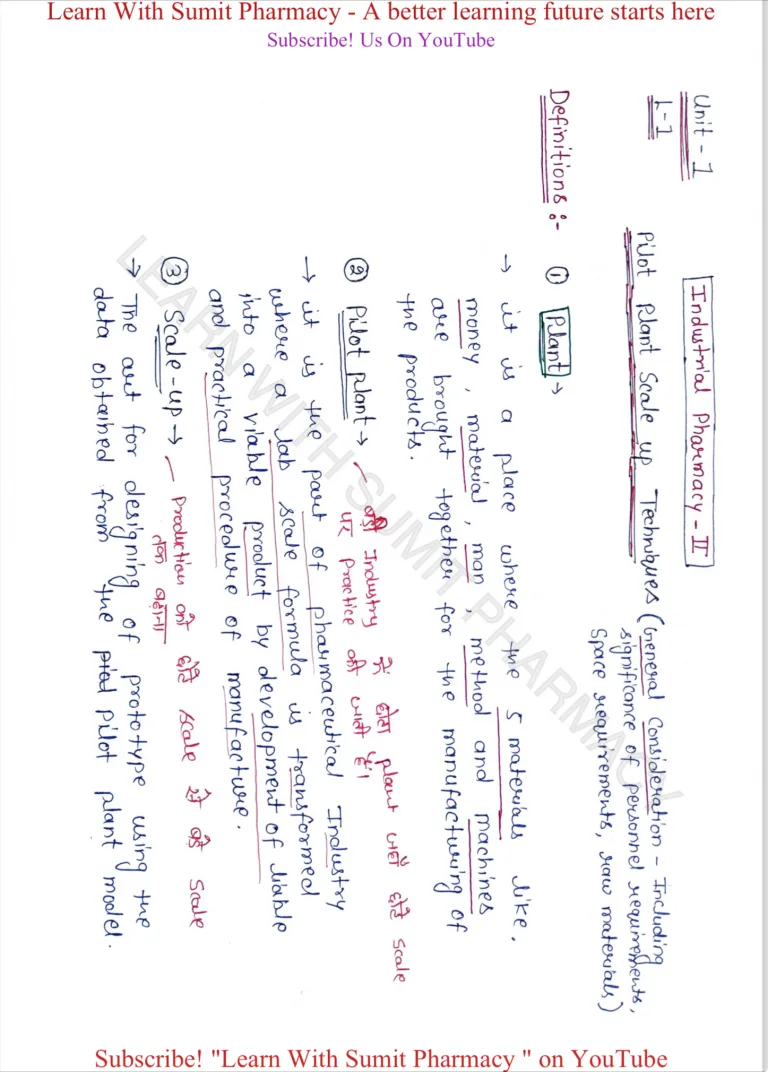 Learn With Sumit Pharmacy - A better learning future starts here
Subscribe! Us On YouTube
Unit - 1
L-1
Industrial Pharmacy - II
Pilot Plant Scale up Techniques (General Consideration - Including
significance of personnel requirements,
Space requirements, raw materials)
Definitions :-
① Plant →
→ it is a place where the 5 materials like,
money, material, man, method and machines
are brought together for the manufacturing of
the products.
② Pilot plant → बड़ी Industry में छोटा plant जहाँ छोटे scale
पर practice की जाती है।
→ it is the part of pharmaceutical Industry
where a lab scale formula is transformed
into a viable product by development of liable
and practical procedure of manufacture.
③ Scale-up → Production को छोटे scale से बड़े scale
तक बढ़ाना
→ The art for designing of prototype using the
data obtained from the pilot plant model.
LEARN WITH SUMIT PHARMACY
Subscribe! "Learn With Sumit Pharmacy " on YouTube